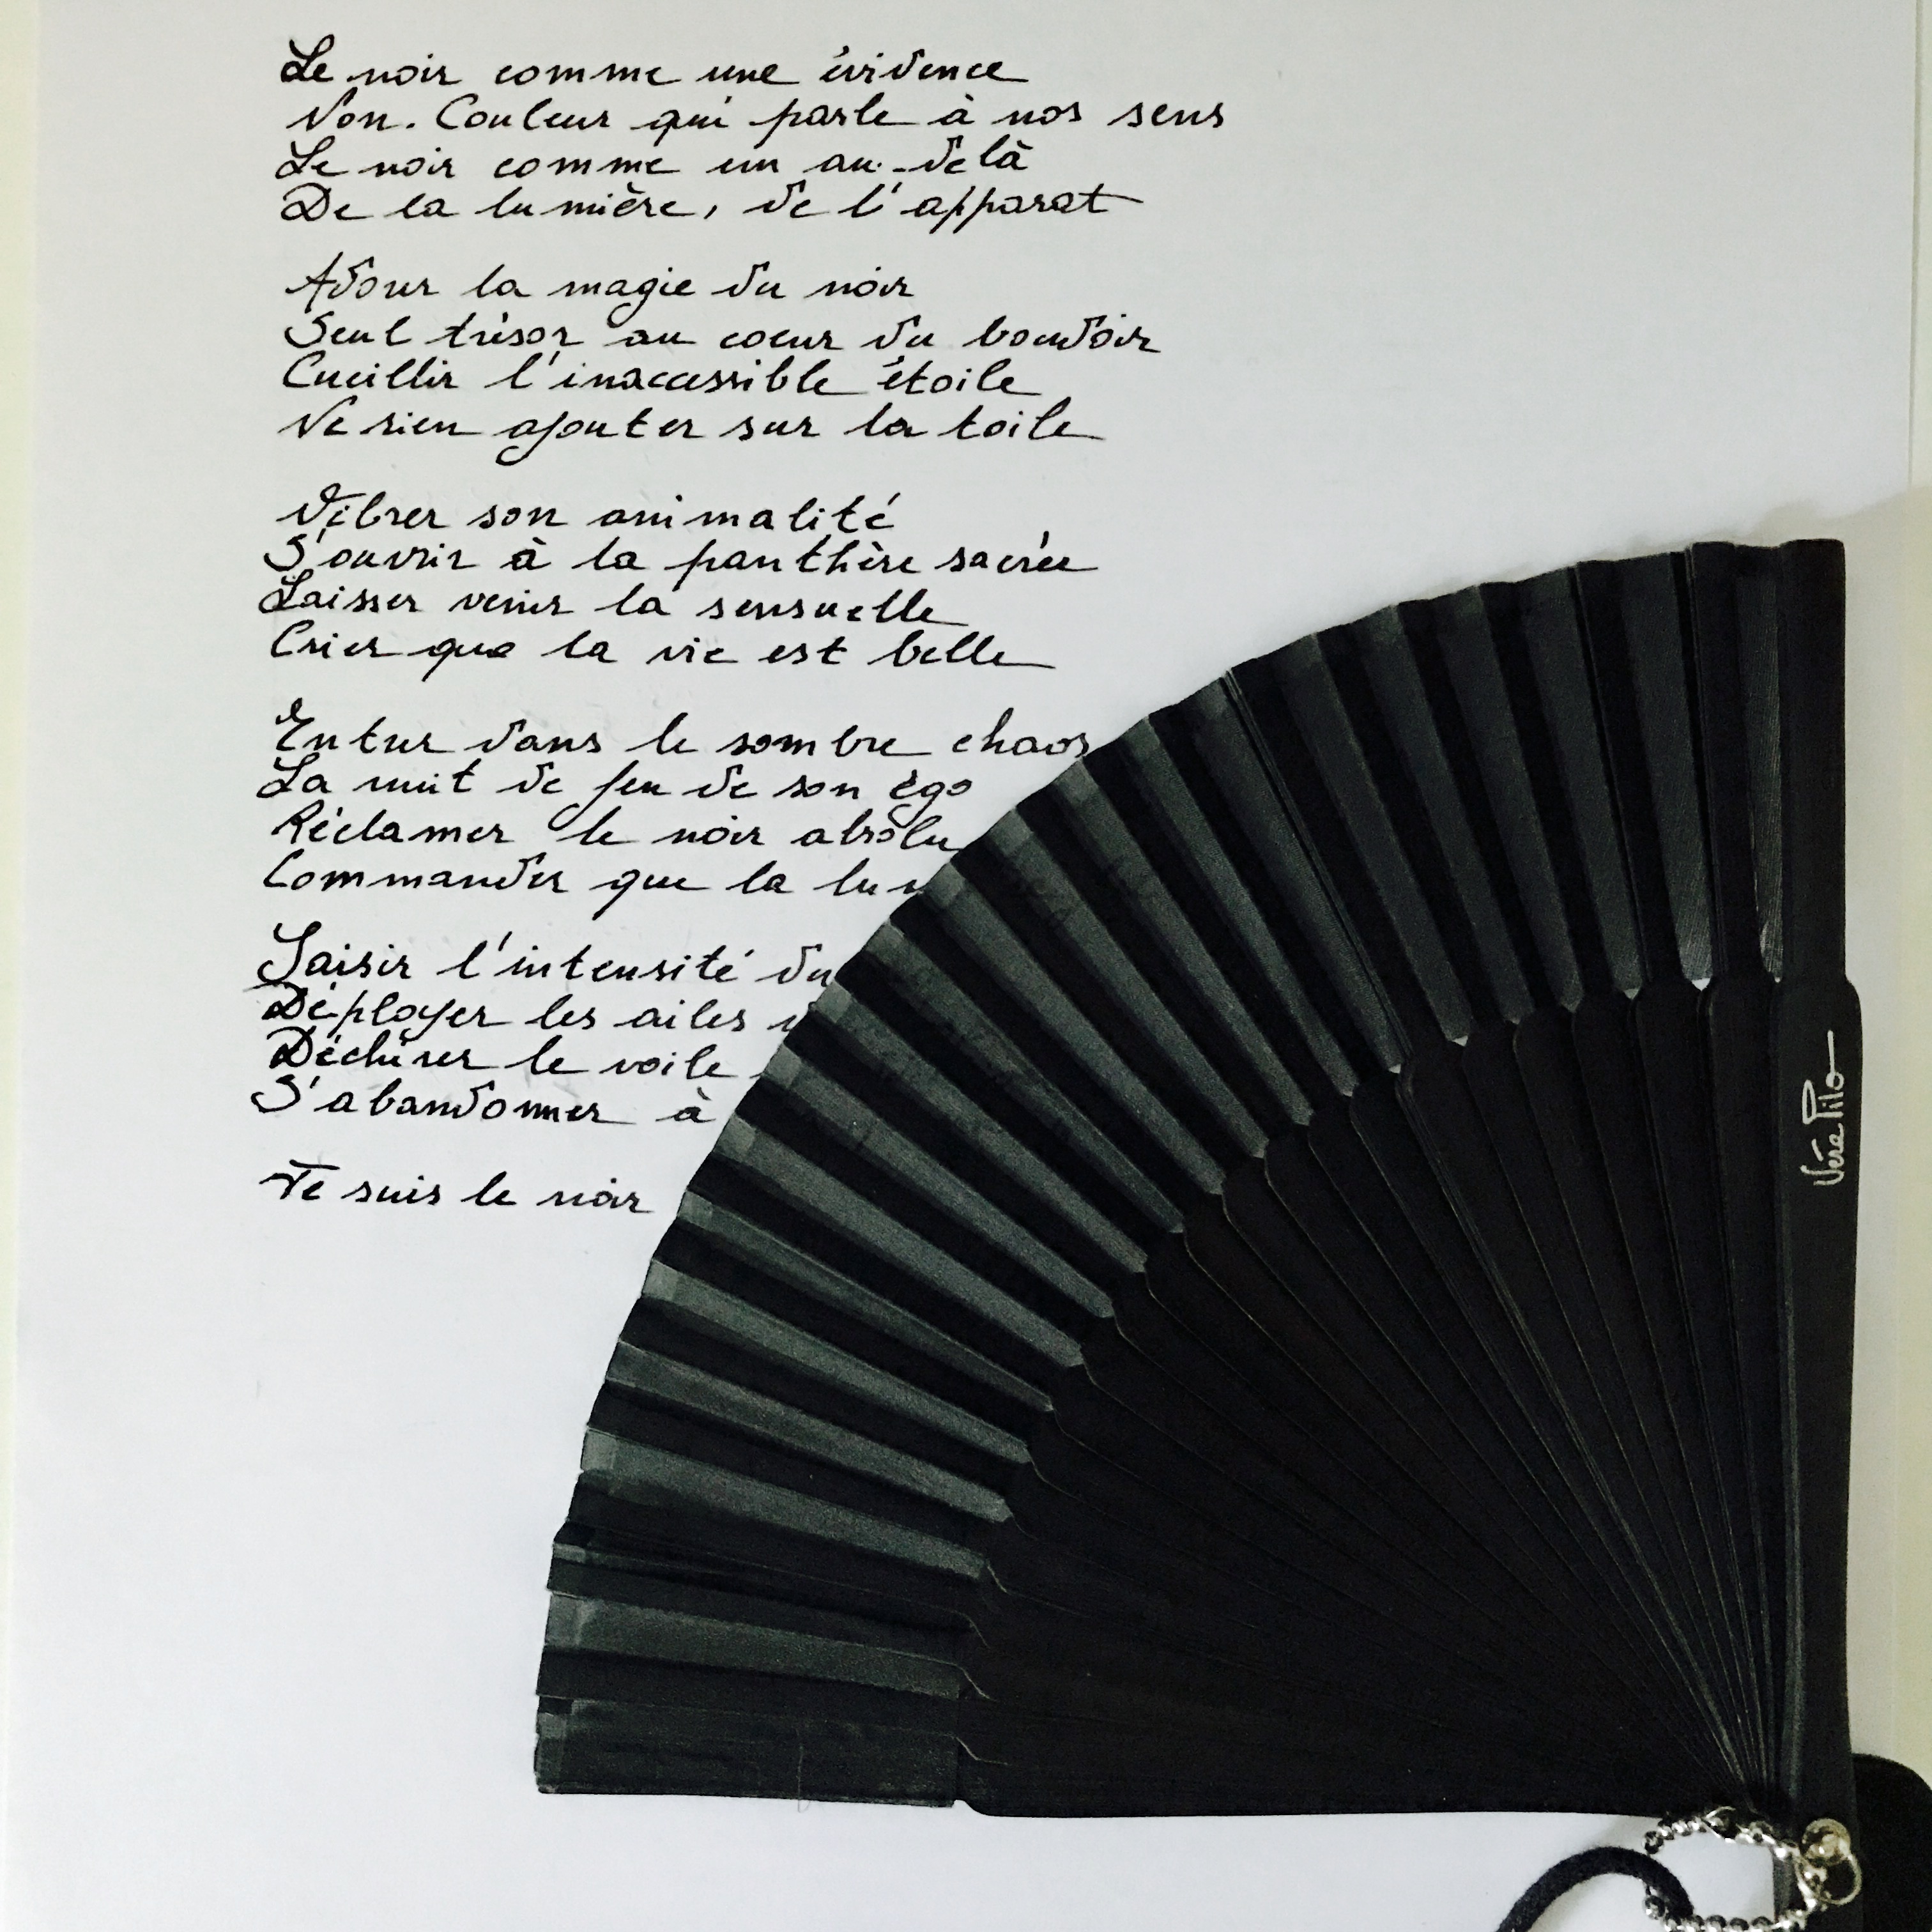 Le noir comme une évidence
Non. Couleur qui parle à nos sens
Le noir comme un au-delà
De la lumière, de l'apparat
Adorer la magie du noir
Seul trésor au coeur du boudoir
Cueillir l'inaccessible étoile
Ne rien ajouter sur la toile
Vibrer son animalité
S'ouvrir à la panthère sacrée
Laisser venir la sensuelle
Crier que la vie est belle
Entrer dans le sombre chaos
La nuit de feu de son égo
Réclamer le noir absolu
Commander que la
Saisir l'intensité du
Déployer les ailes
Déchirer le voile
S'abandonner à
Je suis le noir
Véra Pilo